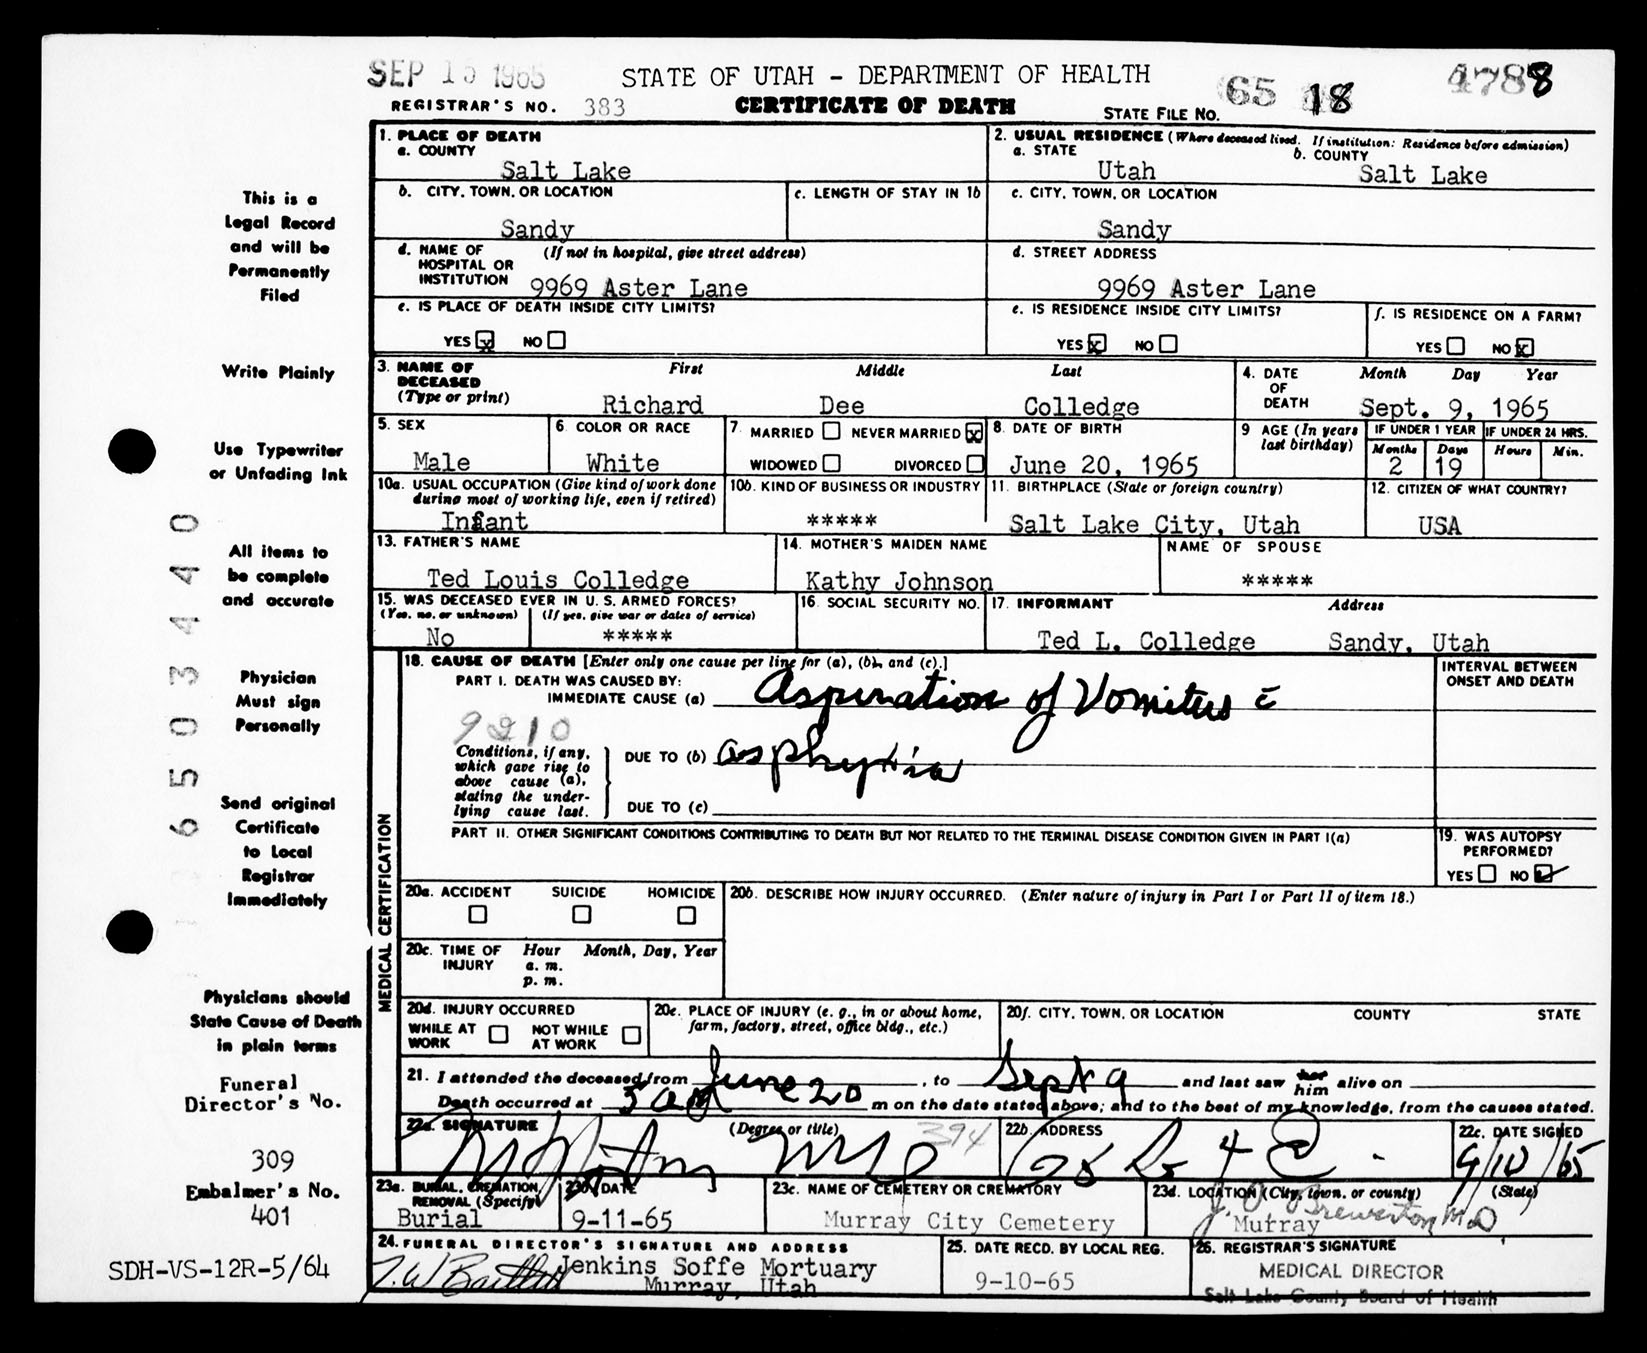 SEP 15 1965 STATE OF UTAH - DEPARTMENT OF HEALTH 65 18 4788
REGISTRAR'S NO. 383 CERTIFICATE OF DEATH STATE FILE NO.
1. PLACE OF DEATH
a. COUNTY
Salt Lake
2. USUAL RESIDENCE (Where deceased lived. If institution: Residence before admission)
a. STATE b. COUNTY
Utah Salt Lake
b. CITY, TOWN, OR LOCATION c. LENGTH OF STAY IN 1b
Sandy
c. CITY, TOWN, OR LOCATION
Sandy
d. NAME OF (If not in hospital, give street address)
HOSPITAL OR
INSTITUTION 9969 Aster Lane
d. STREET ADDRESS
9969 Aster Lane
e. IS PLACE OF DEATH INSIDE CITY LIMITS?
YES x NO
e. IS RESIDENCE INSIDE CITY LIMITS?
YES x NO
f. IS RESIDENCE ON A FARM?
YES NO x
3. NAME OF First Middle Last
DECEASED
(Type or print) Richard Dee Colledge
4. DATE Month Day Year
OF
DEATH Sept. 9, 1965
5. SEX
Male
6. COLOR OR RACE
White
7. MARRIED NEVER MARRIED x
WIDOWED DIVORCED
8. DATE OF BIRTH
June 20, 1965
9 AGE (In years
last birthday)
IF UNDER 1 YEAR IF UNDER 24 HRS.
Months Days Hours Min.
2 19
10a. USUAL OCCUPATION (Give kind of work done
during most of working life, even if retired)
Infant
10b. KIND OF BUSINESS OR INDUSTRY
*****
11. BIRTHPLACE (State or foreign country)
Salt Lake City, Utah
12. CITIZEN OF WHAT COUNTRY?
USA
13. FATHER'S NAME
Ted Louis Colledge
14. MOTHER'S MAIDEN NAME
Kathy Johnson
NAME OF SPOUSE
*****
15. WAS DECEASED EVER IN U. S. ARMED FORCES?
(Yes, no, or unknown) (If yes, give war or dates of service)
No *****
16. SOCIAL SECURITY NO.
17. INFORMANT Address
Ted L. Colledge Sandy, Utah
MEDICAL CERTIFICATION
18. CAUSE OF DEATH [Enter only one cause per line for (a), (b), and (c).]
INTERVAL BETWEEN
ONSET AND DEATH
PART I. DEATH WAS CAUSED BY:
IMMEDIATE CAUSE (a) Aspiration of Vomitus c̄
9210
Conditions, if any,
which gave rise to
above cause (a),
stating the under-
lying cause last.
DUE TO (b) asphyxia
DUE TO (c)
PART II. OTHER SIGNIFICANT CONDITIONS CONTRIBUTING TO DEATH BUT NOT RELATED TO THE TERMINAL DISEASE CONDITION GIVEN IN PART I(a)
19. WAS AUTOPSY
PERFORMED?
YES NO ✓
20a. ACCIDENT SUICIDE HOMICIDE
20b. DESCRIBE HOW INJURY OCCURRED. (Enter nature of injury in Part I or Part II of item 18.)
20c. TIME OF Hour Month, Day, Year
INJURY a. m.
p. m.
20d. INJURY OCCURRED
WHILE AT WORK NOT WHILE AT WORK
20e. PLACE OF INJURY (e. g., in or about home,
farm, factory, street, office bldg., etc.)
20f. CITY, TOWN, OR LOCATION COUNTY STATE
21. I attended the deceased from June 20, to Sept 9 and last saw her him alive on
Death occurred at 5 a m on the date stated above; and to the best of my knowledge, from the causes stated.
22a. SIGNATURE (Degree or title) 394
22b. ADDRESS
22c. DATE SIGNED
9/10/65
23a. BURIAL, CREMATION,
REMOVAL (Specify)
Burial
23b. DATE
9-11-65
23c. NAME OF CEMETERY OR CREMATORY
Murray City Cemetery
23d. LOCATION (City, town, or county) (State)
Murray
24. FUNERAL DIRECTOR'S SIGNATURE AND ADDRESS
Jenkins Soffe Mortuary
Murray, Utah
25. DATE RECD. BY LOCAL REG.
9-10-65
26. REGISTRAR'S SIGNATURE
MEDICAL DIRECTOR
Salt Lake County Board of Health
This is a
Legal Record
and will be
Permanently
Filed
Write Plainly
Use Typewriter
or Unfading Ink
All items to
be complete
and accurate
Physician
Must sign
Personally
Send original
Certificate
to Local
Registrar
Immediately
Physicians should
State Cause of Death
in plain terms
Funeral
Director's No.
309
Embalmer's No.
401
SDH-VS-12R-5/64
6503440